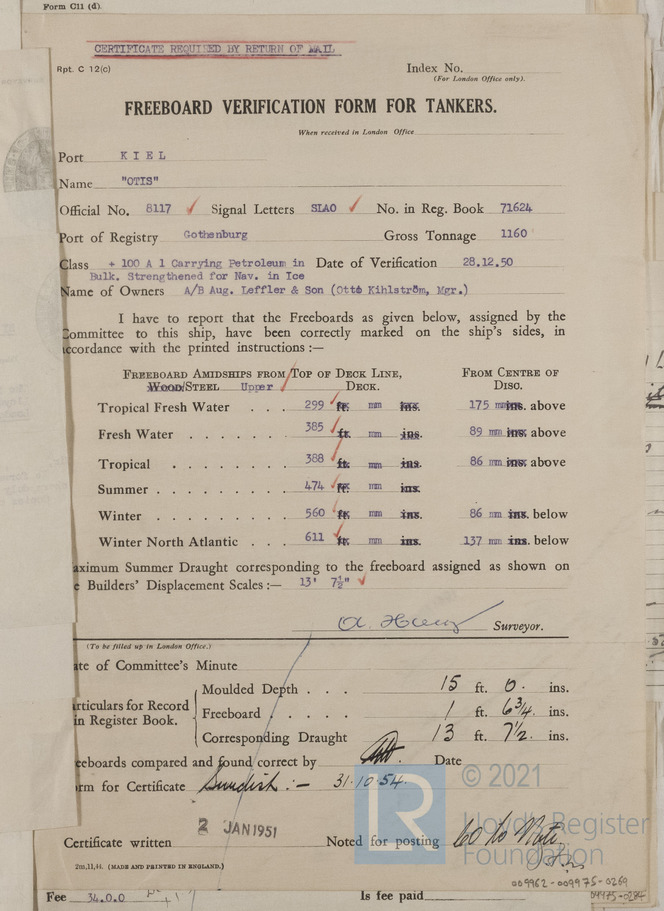 Form C11 (d).
CERTIFICATE REQUIRED BY RETURN OF MAIL
Rpt. C 12(c)
Index No.
(For London Office only).
FREEBOARD VERIFICATION FORM FOR TANKERS.
When received in London Office
Port KIEL
Name "OTIS"
Official No. 8117 Signal Letters SLAO No. in Reg. Book 71624
Port of Registry Gothenburg Gross Tonnage 1160
Class + 100 A 1 Carrying Petroleum in Date of Verification 28.12.50
Bulk. Strengthened for Nav. in Ice
Name of Owners A/B Aug. Leffler & Son (Otto Kihlström, Mgr.)
I have to report that the Freeboards as given below, assigned by the
Committee to this ship, have been correctly marked on the ship's sides, in
accordance with the printed instructions :—
FREEBOARD AMIDSHIPS FROM TOP OF DECK LINE, FROM CENTRE OF
WOOD/STEEL Upper DECK. DISC.
Tropical Fresh Water . . . 299 ft. mm ins. 175 mm ins. above
Fresh Water . . . . . . . 385 ft. mm ins. 89 mm ins. above
Tropical . . . . . . . . 388 ft. mm ins. 86 mm ins. above
Summer . . . . . . . . . 474 ft. mm ins.
Winter . . . . . . . . . 560 ft. mm ins. 86 mm ins. below
Winter North Atlantic . . . 611 ft. mm ins. 137 mm ins. below
aximum Summer Draught corresponding to the freeboard assigned as shown on
e Builders' Displacement Scales :— 13' 7½"
Surveyor.
(To be filled up in London Office.)
ate of Committee's Minute
Moulded Depth . . . 15 ft. 0. ins.
articulars for Record
in Register Book.
Freeboard . . . . . 1 ft. 6¾. ins.
Corresponding Draught 13 ft. 7½. ins.
eeboards compared and found correct by Date
rm for Certificate Swedish :— 31.10.54.
2 JAN 1951
Certificate written Noted for posting
2m,11,44. (MADE AND PRINTED IN ENGLAND.)
Fee 34.0.0 Is fee paid
© 2021
LR
Lloyd's Register
Foundation
009962-009975-0269